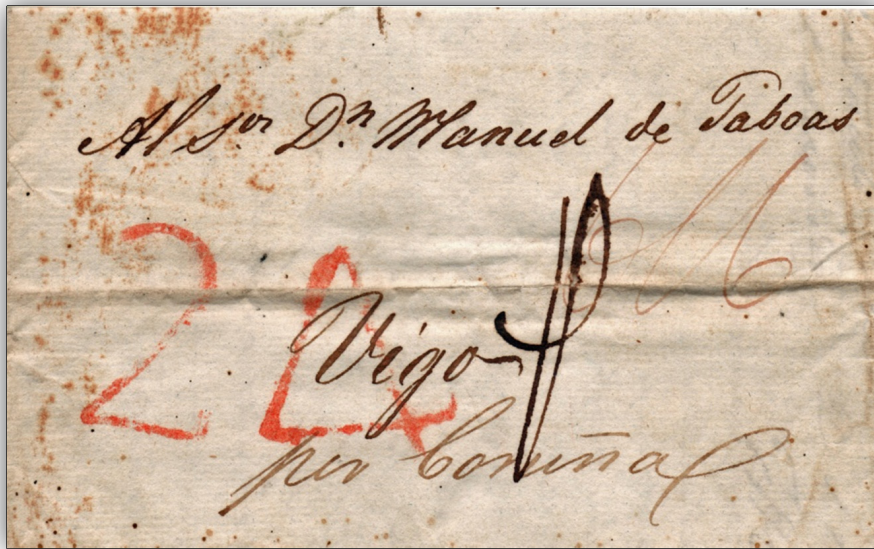 Al Sor. Dn. Manuel de Taboas
24
Vigo
por Coruña